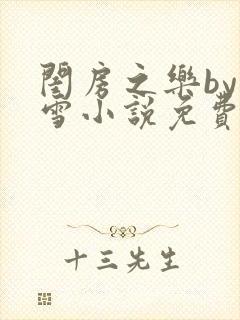 閨房之樂by
雪小說免費
十三先生